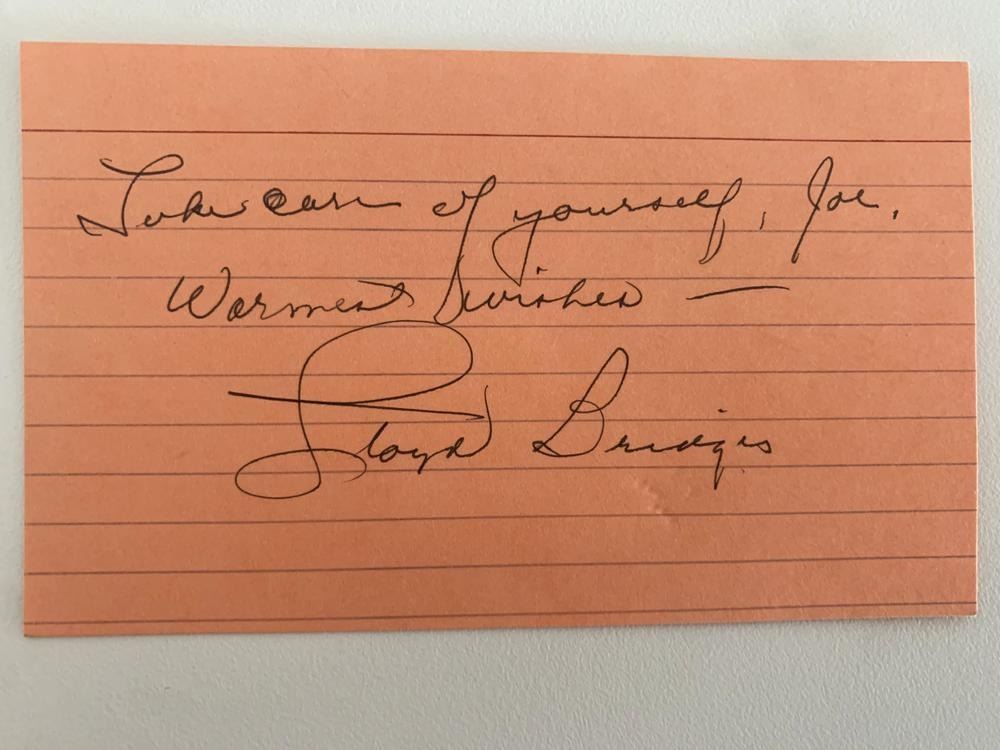 Take care of yourself, Joe.
Warmest wishes —
Lloyd Bridges